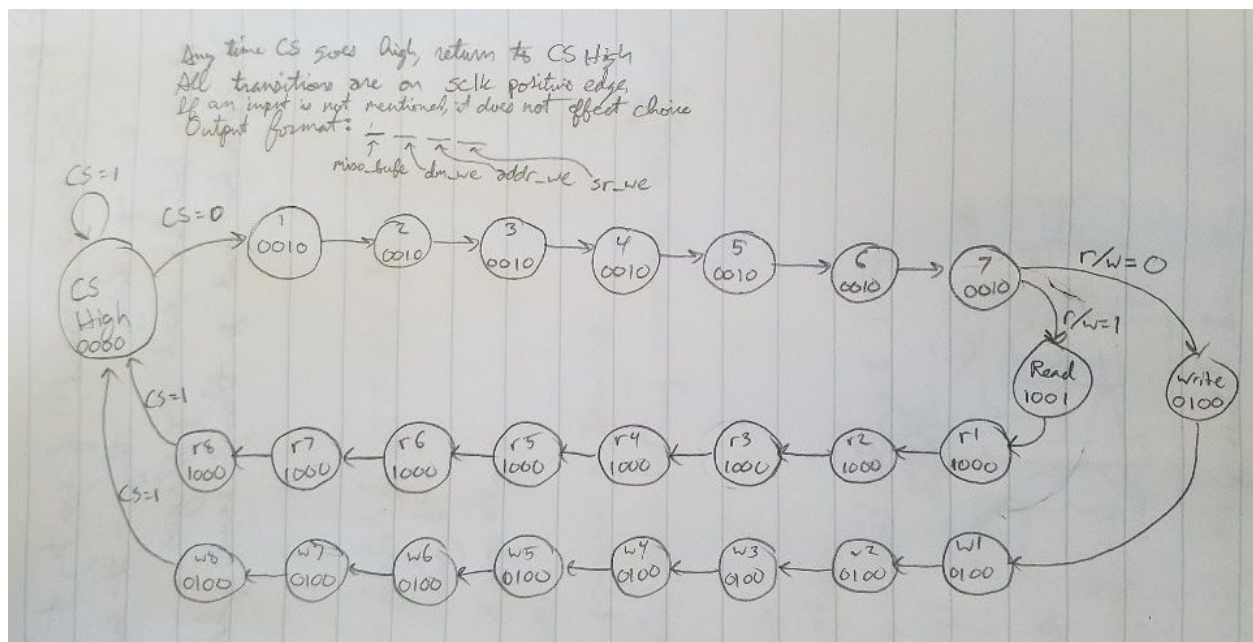 Any time CS goes high, return to CS High
All transitions are on sclk positive edge,
If an input is not mentioned, it does not effect choice
Output format: _ _ _ _
miso_bufe dm_we addr_we sr_we
CS=1
CS=0
1
0010
2
0010
3
0010
4
0010
5
0010
6
0010
7
0010
r/w=0
r/w=1
CS
High
0000
Read
1001
Write
0100
CS=1
r8
1000
r7
1000
r6
1000
r5
1000
r4
1000
r3
1000
r2
1000
r1
1000
CS=1
w8
0100
w7
0100
w6
0100
w5
0100
w4
0100
w3
0100
w2
0100
w1
0100